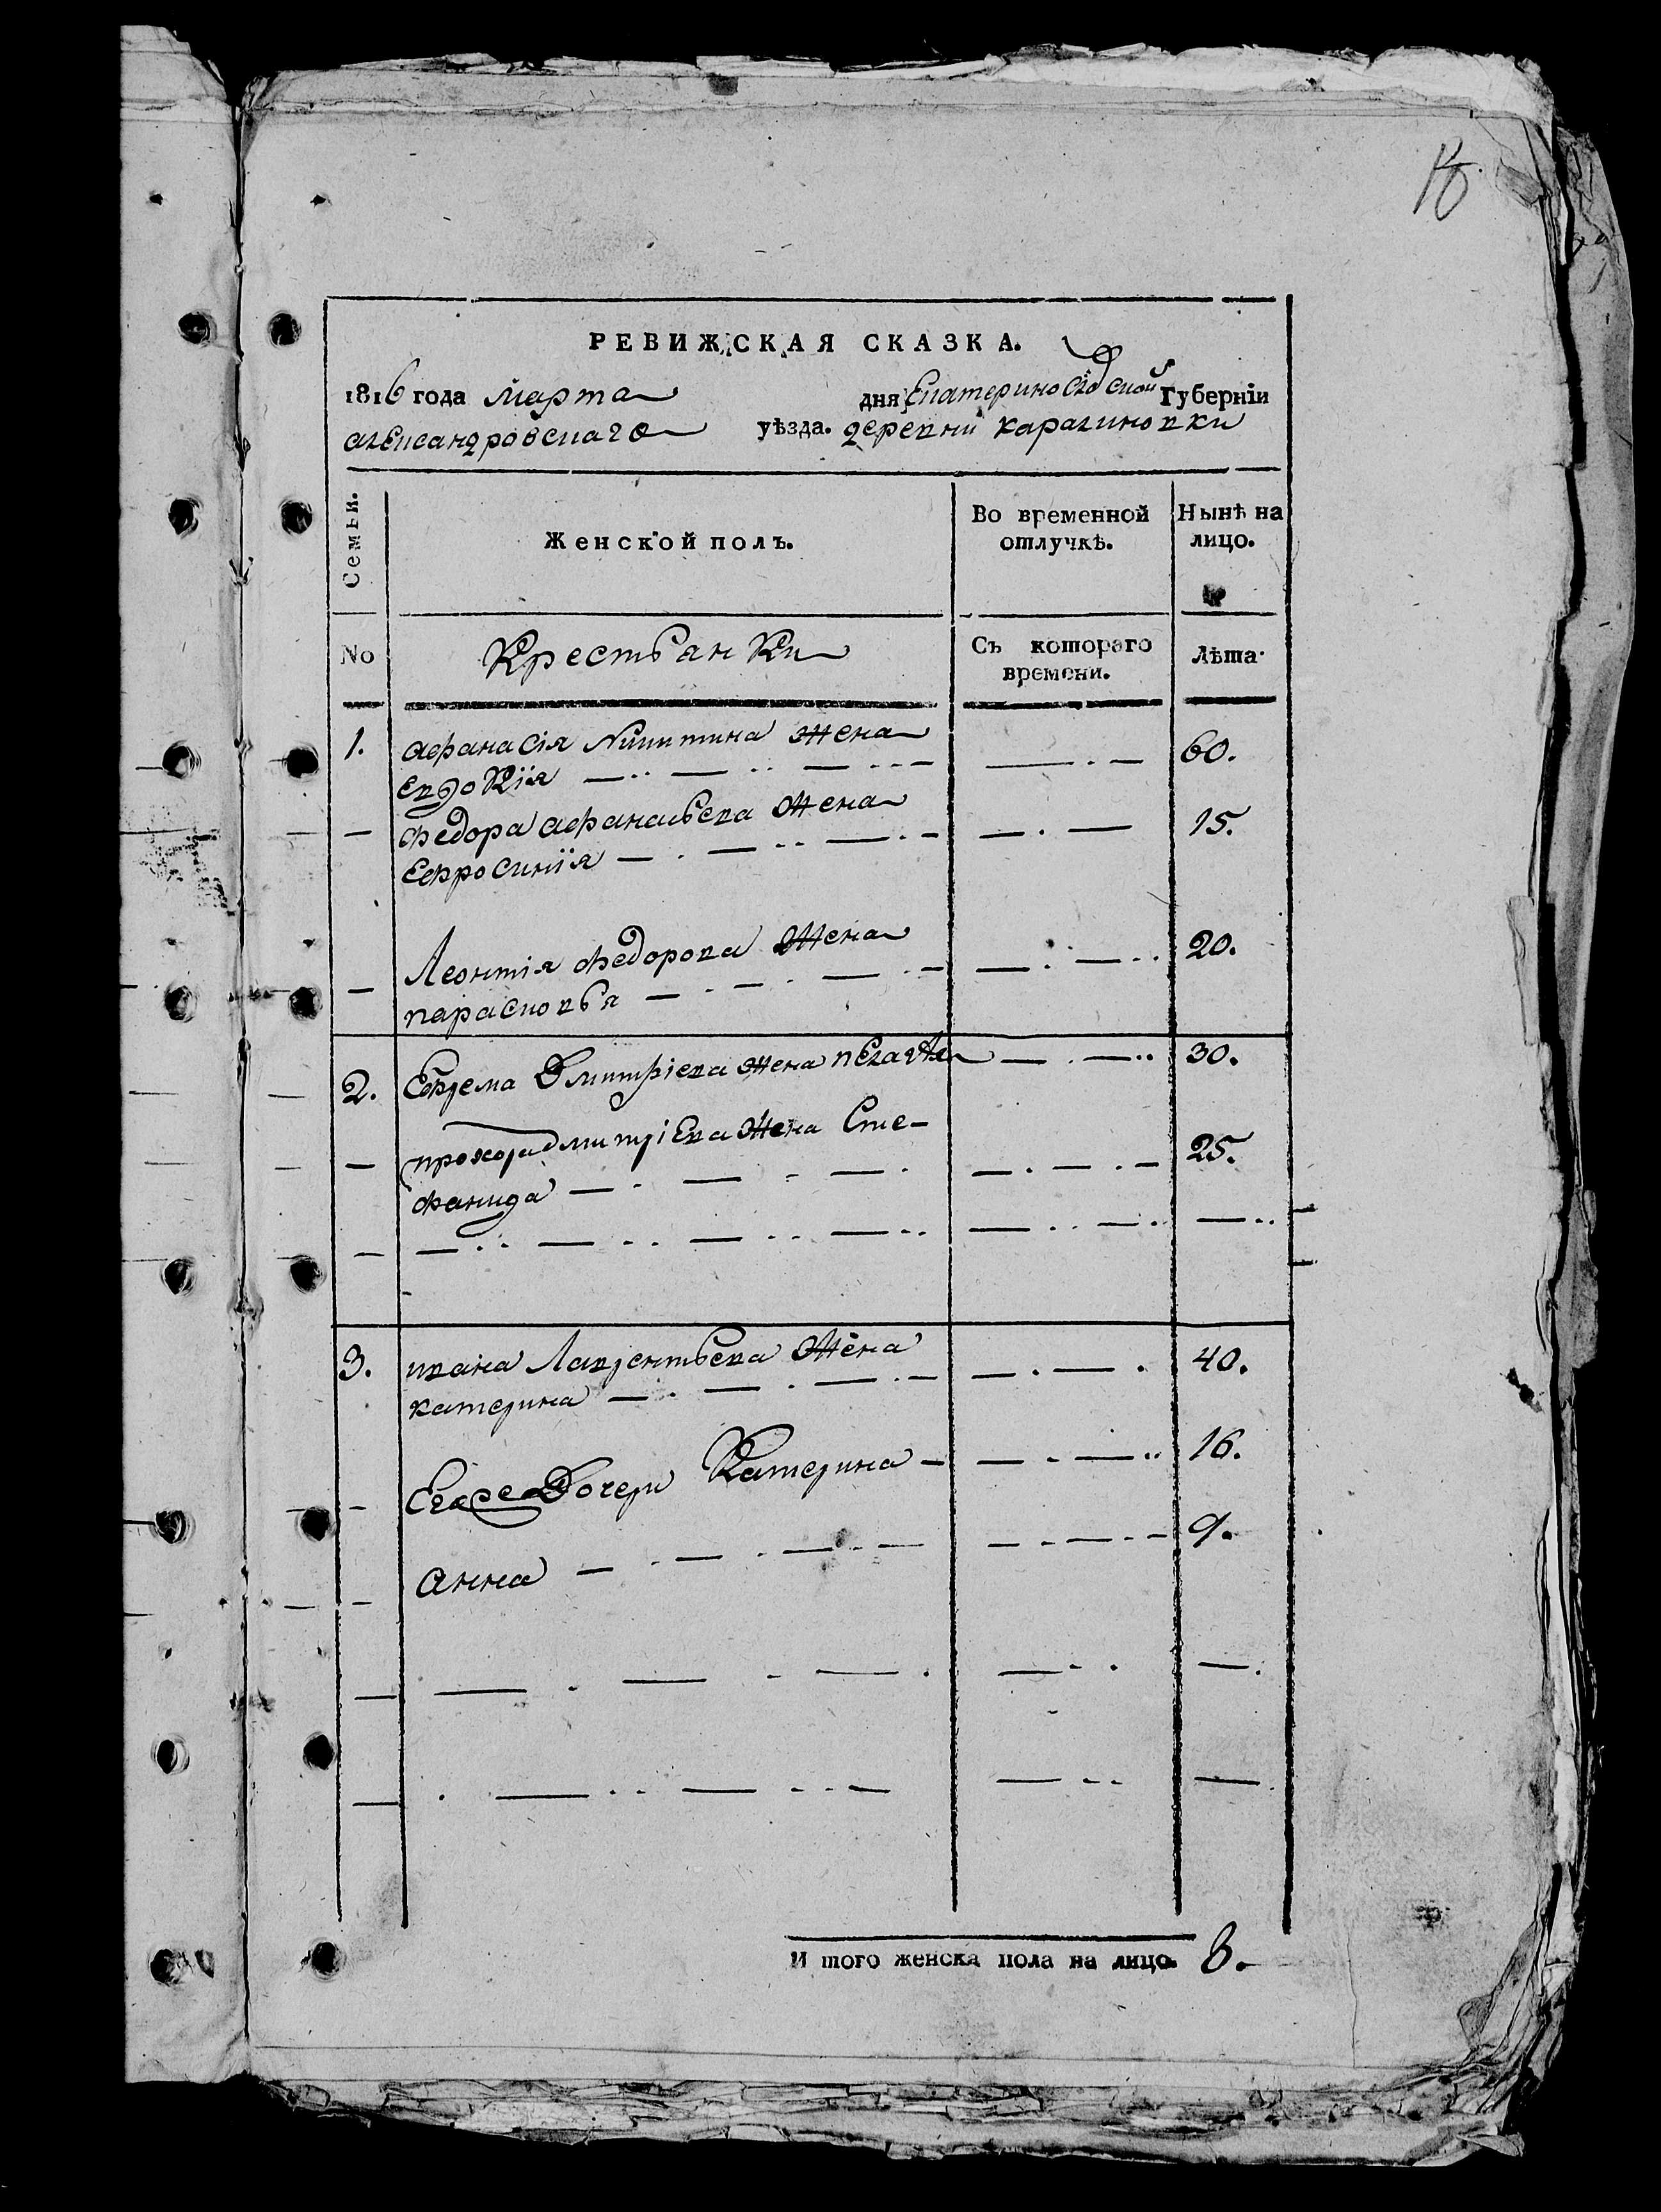 18
РЕВИЖСКАЯ СКАЗКА.
1816 года Марта дня Екатериносл҃ской Губерніи
александровскаго уѣзда. деревни каралиновки
Семьи. Женской полъ. Во временной отлучкѣ. Нынѣ на лицо.
No Крестьянки Съ котораго времени. Лѣта.
1. афанасія Никитина жена 60.
Евдокія
федора афанасьева жена 15.
Ефросинія
Леонтія федорова жена 20.
парасковья
2. Ефрема Дмитріева жена пелагѣя 30.
прохора дмитріева жена Сте- 25.
фанида
3. ивана Лаврентьева жена 40.
катерина
Его дочери Катерина 16.
анна 9.
И того женска пола на лицо. 8.